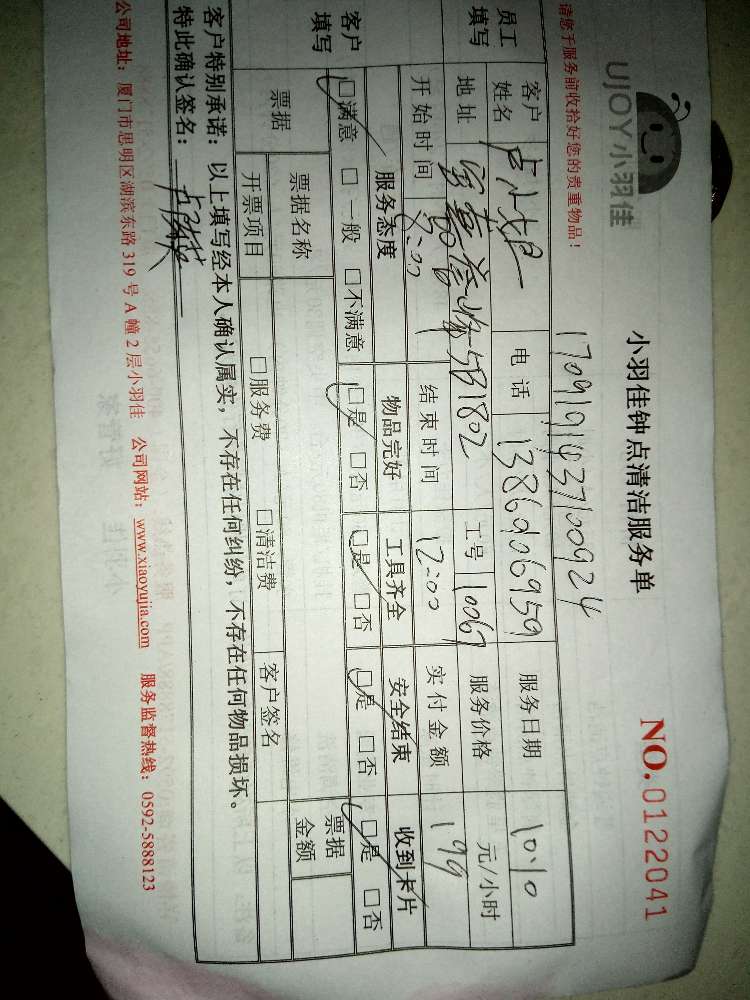 UJOY小羽佳
小羽佳钟点清洁服务单
NO.0122041
请您于服务前收拾好您的贵重物品!
1709191037100924
员工填写
客户姓名 卢小姐 电话 13860106959 服务日期 10.10
地址 5B1802 工号 10067 服务价格 元/小时
开始时间 8:00 结束时间 12:00 实付金额 199
客户填写
服务态度 物品完好 工具齐全 安全结束 收到卡片
□满意 □一般 □不满意 □是 □否 □是 □否 □是 □否 □是 □否
票据 票据名称 客户签名 票据金额
开票项目 □服务费 □清洁费
客户特别承诺:以上填写经本人确认属实,不存在任何纠纷,不存在任何物品损坏。
特此确认签名:
公司地址:厦门市思明区湖滨东路 319 号 A 幢 2 层小羽佳 公司网站:www.xiaoyujia.com 服务监督热线:0592-5888123